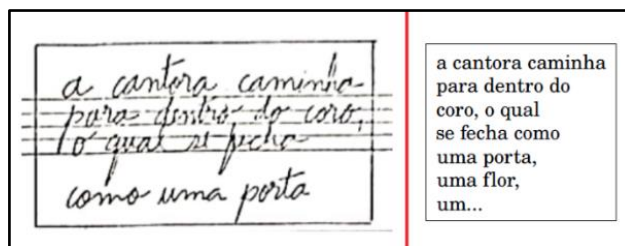 a cantora caminha
para dentro do coro,
o qual se fecha
como uma porta
a cantora caminha
para dentro do
coro, o qual
se fecha como
uma porta,
uma flor,
um...